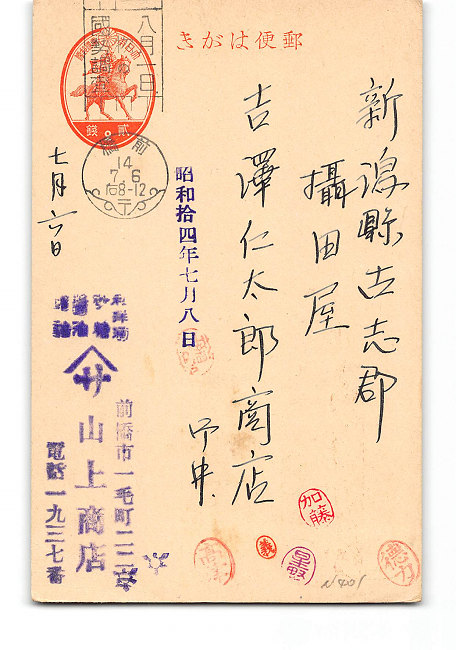 郵便はがき
八月一日
國勢調査
貳錢
前橋
14
7.6
后8-12
新潟縣古志郡
攝田屋
吉澤仁太郎商店
七月六日
昭和拾四年七月八日
山上商店
前橋市一毛町二二
電話一九三七番
サ
加藤
星野
德力